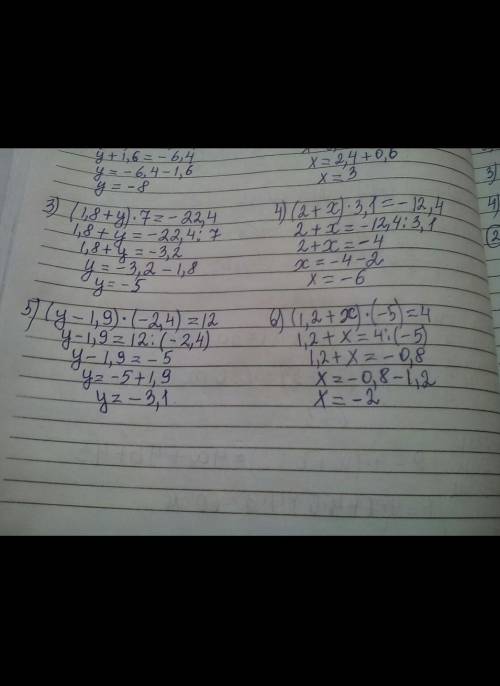 y+1,6=-6,4
y=-6,4-1,6
y=-8
x=2,4+0,6
x=3
3) (1,8+y)·7=-22,4
1,8+y=-22,4:7
1,8+y=-3,2
y=-3,2-1,8
y=-5
4) (2+x)·3,1=-12,4
2+x=-12,4:3,1
2+x=-4
x=-4-2
x=-6
5) (y-1,9)·(-2,4)=12
y-1,9=12:(-2,4)
y-1,9=-5
y=-5+1,9
y=-3,1
6) (1,2+x)·(-5)=4
1,2+x=4:(-5)
1,2+x=-0,8
x=-0,8-1,2
x=-2
3)
4)
2